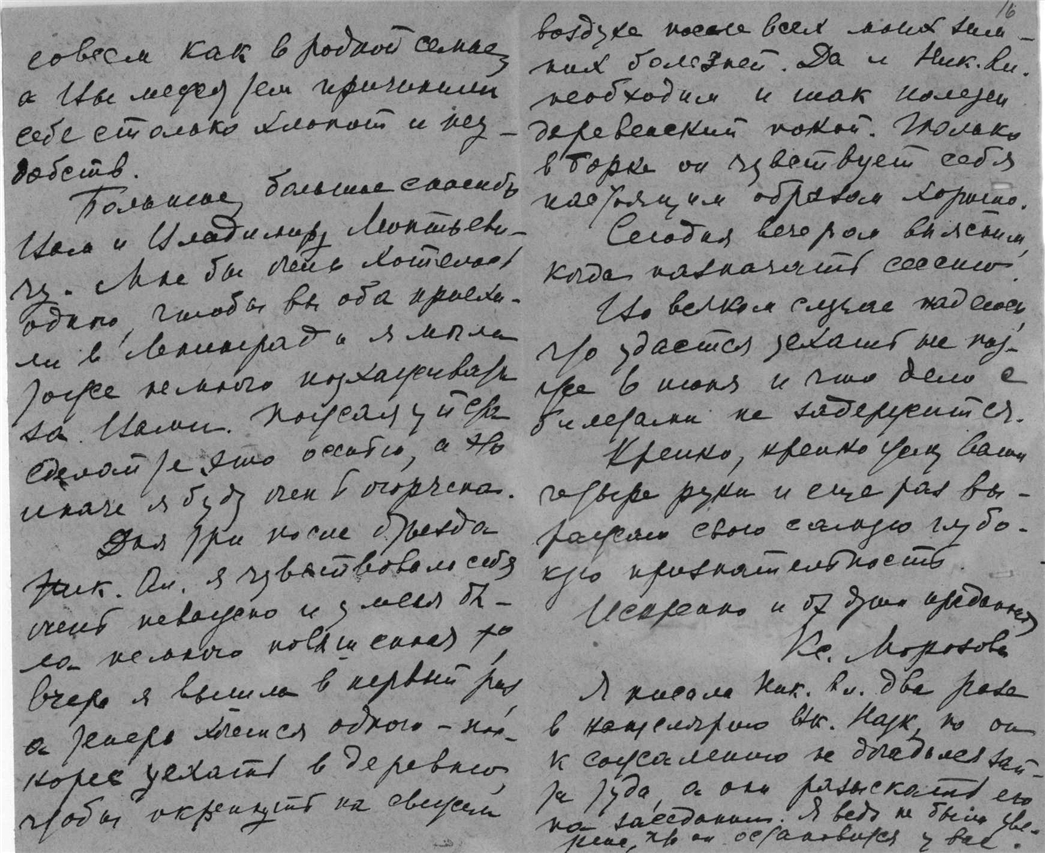 совсем как в родной семье,
а Вы между тем причинили
себе столько хлопот и неу-
добств.
Большое, большое спасибо
Вам и Владимиру Леонтьеви-
чу. Мне бы очень хотелось
одного, чтобы вы оба приеха-
ли в Ленинград и я могла
тоже немного поухаживать
за Вами. Пожалуйста
сделайте это осенью, а то
иначе я буду очень огорчена.
Дня три после отъезда
Ник. Ал. я чувствовала себя
очень неважно и у меня бы-
ла немного повышенная to,
вчера я вышла в первый раз
а теперь хочется одного - по-
скорее уехать в деревню,
чтобы окрепнуть на свежем
16
воздухе после всех моих зим-
них болезней. Да и Ник. Ал.
необходим и так полезен
деревенский покой. Только
в Борке он чувствует себя
настоящим образом хорошо.
Сегодня вечером выясним,
когда назначат сессию.
Во всяком случае надеюсь,
что удастся уехать не поз-
же 6 июня и что дело с
билетами не задержится.
Крепко, крепко жму Ваши
четыре руки и еще раз вы-
ражаю свою самую глубо-
кую признательность.
Искренно и от души преданная
Кс. Морозова
Я писала Ник. Ал. два раза
в канцелярию Ак. Наук, но он
к сожалению не догадался зай-
ти туда, а они разыскать его
на заседании. Я ведь не была уве-
рена, что он остановится у вас.